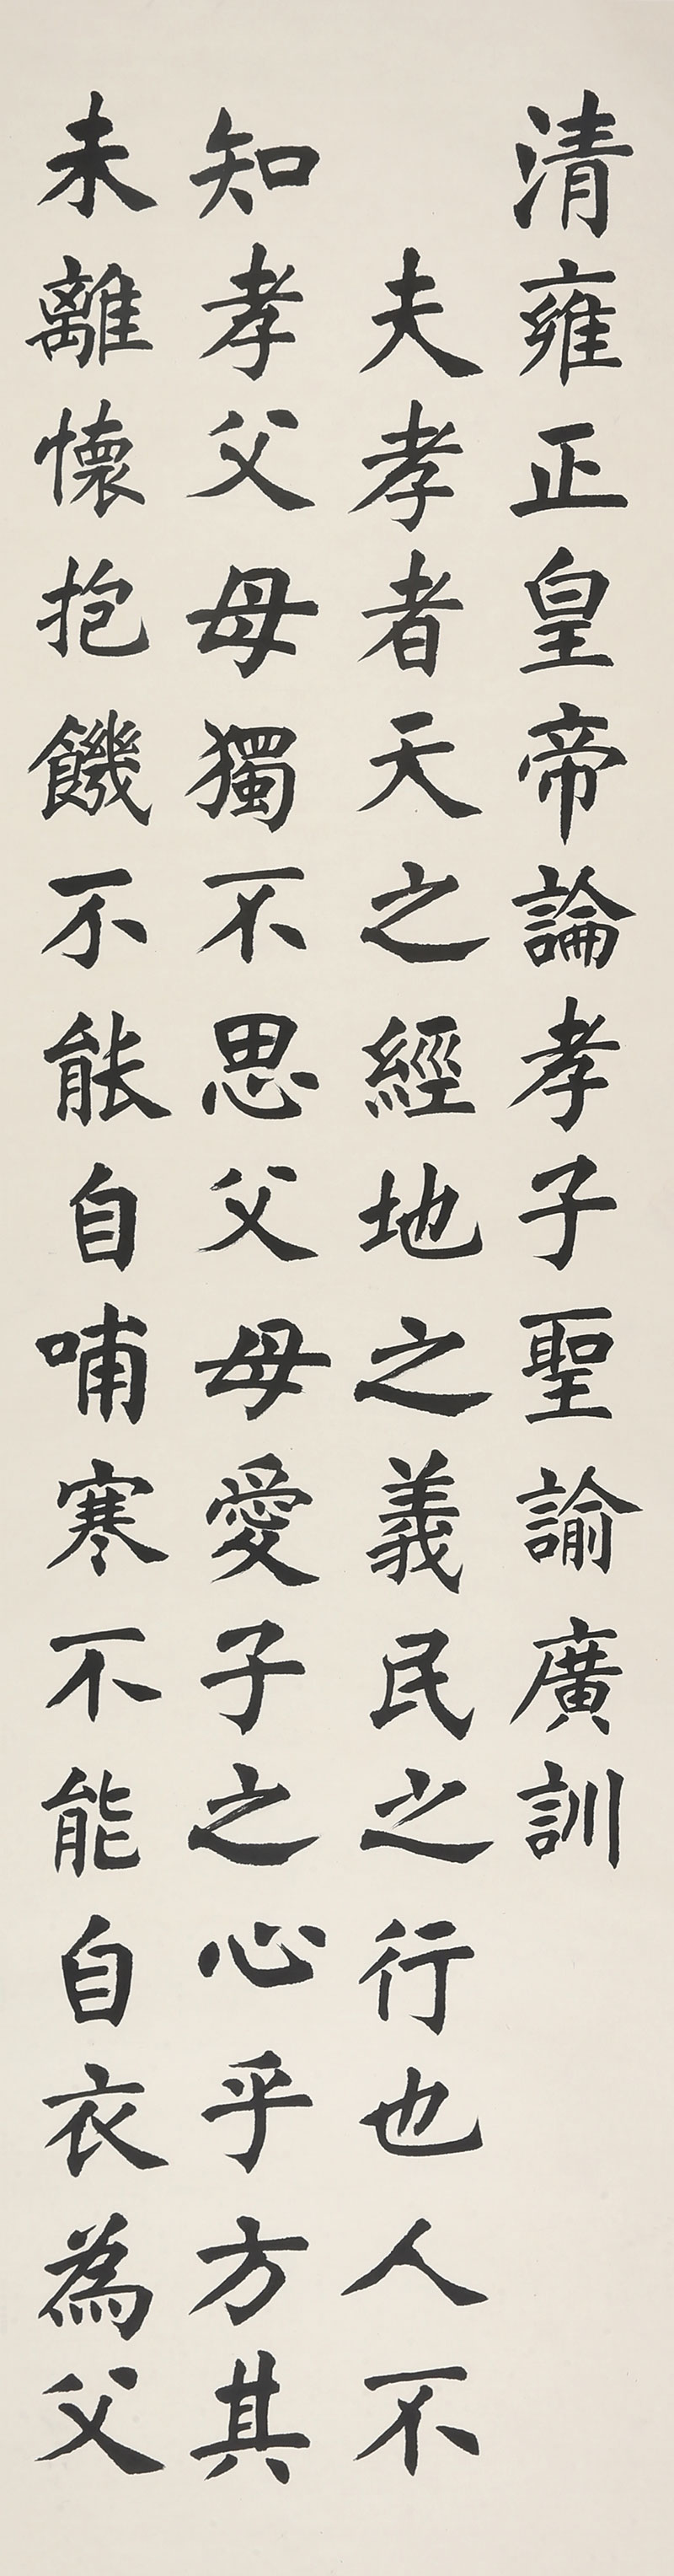 清雍正皇帝論孝子聖諭廣訓
夫孝者天之經地之義民之行也人不
知孝父母獨不思父母愛子之心乎方其
未離懷抱饑不能自哺寒不能自衣為父